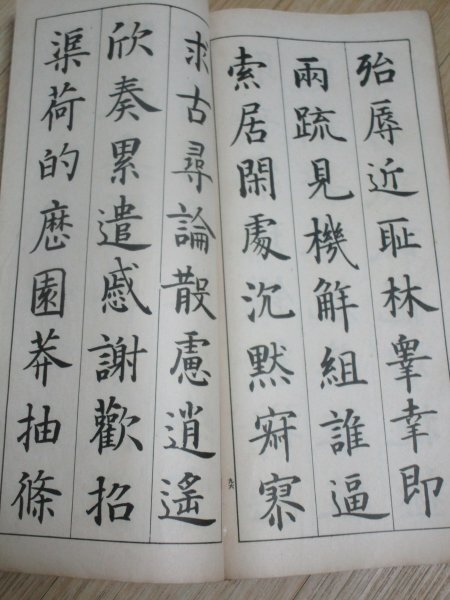 殆辱近耻林睾幸即
兩疏見機解組誰逼
索居閑處沉默寂寥
求古尋論散慮逍遙
欣奏累遣慼謝歡招
渠荷的歷園莽抽條
九六